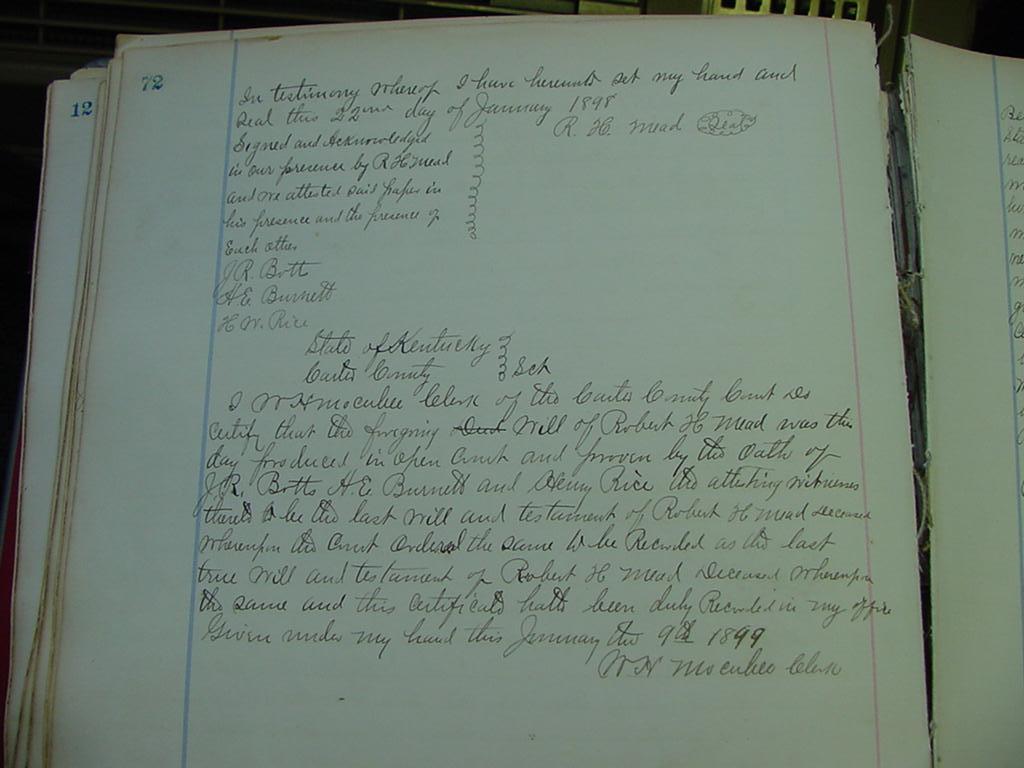 72
12
In testimony whereof I have hereunto set my hand and
seal this 22nd day of January 1898
R. H. Mead (Seal)
Signed and Acknowledged
in our presence by R H Mead
and we attested said paper in
his presence and the presence of
Each other
J. R. Bott
H. E. Burnett
H. W. Rice
State of Kentucky
Carter County Sct
I W H Mocabee Clerk of the Carter County Court do
certify that the foregoing Will of Robert H Mead was this
day produced in open Court and proven by the oath of
J. R. Botts H. E. Burnett and Henry Rice the attesting witnesses
thereto to be the last will and testament of Robert H Mead deceased
Whereupon the Court ordered the same to be Recorded as the last
true will and testament of Robert H Mead Deceased Whereupon
the same and this certificate hath been duly Recorded in my office
Given under my hand this January the 9th 1899
W H Mocabee Clerk